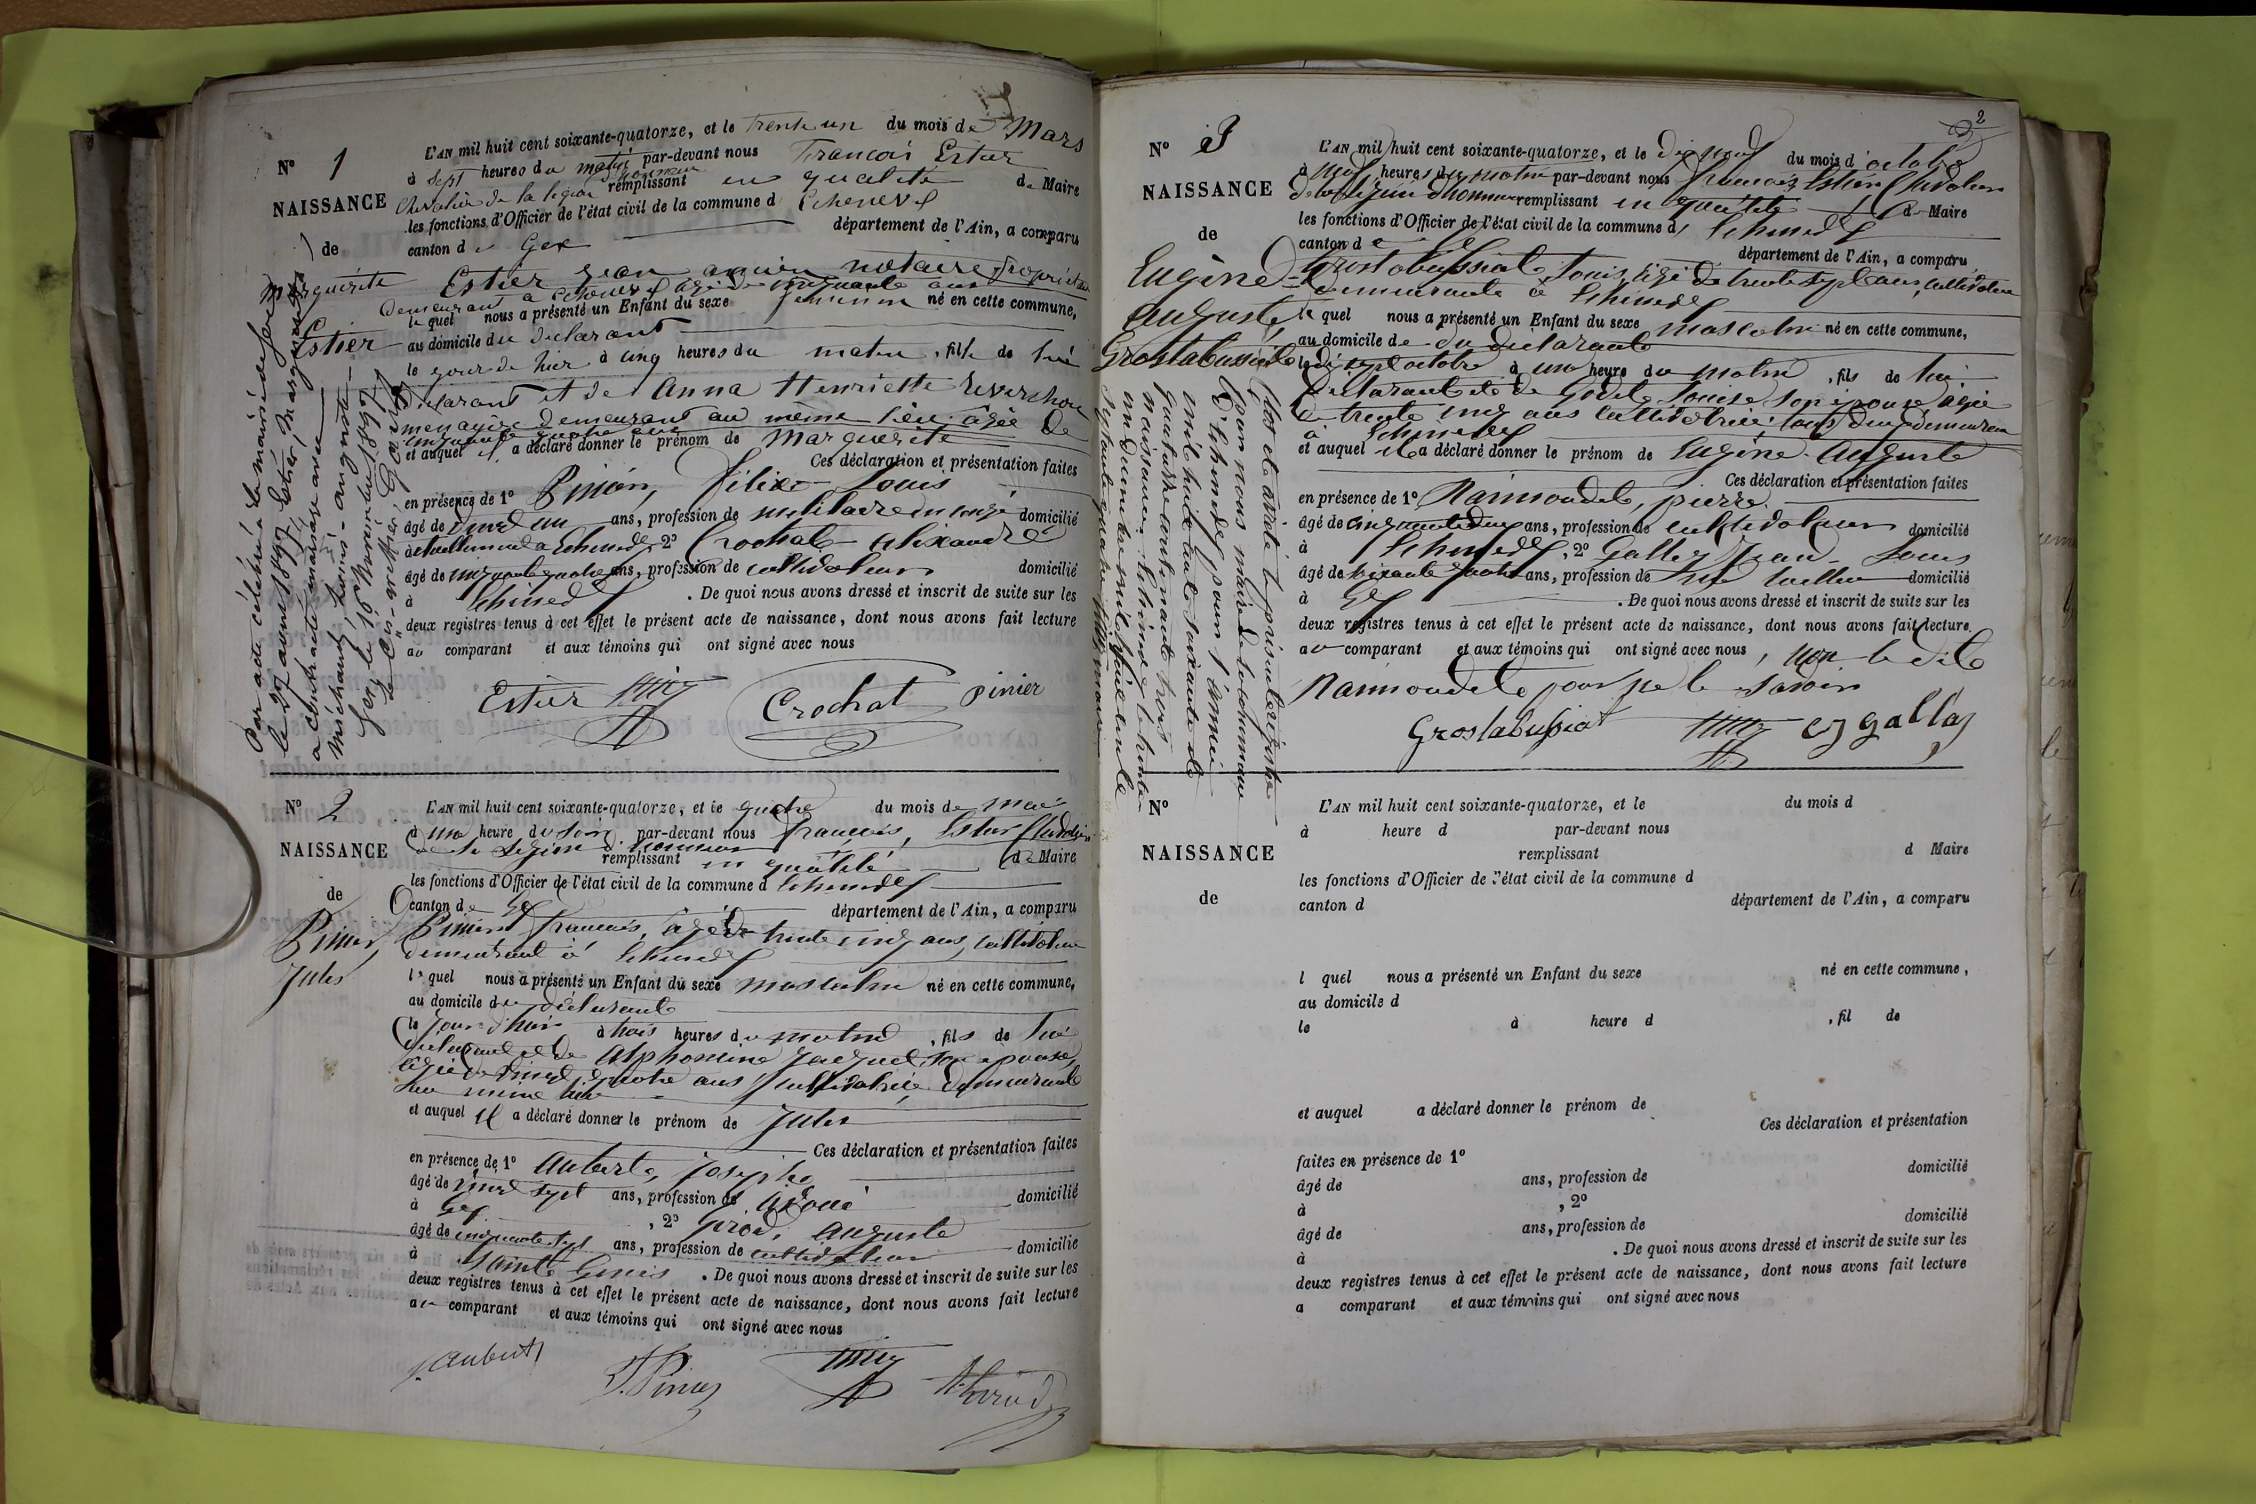 N° 1
NAISSANCE
de
Marguerite
Estier
L'AN mil huit cent soixante-quatorze, et le trente un du mois de Mars
à sept heures du matin par-devant nous François Estier
Chevalier de la légion d'honneur remplissant en qualité de Maire
les fonctions d'Officier de l'état civil de la commune d'Echenevex
canton de Gex département de l'Ain, a comparu
Estier Jean ancien notaire propriétaire
demeurant à Echenevex âgé de cinquante ans
le quel nous a présenté un Enfant du sexe féminin né en cette commune,
au domicile du déclarant
le jour de hier à cinq heures du matin, fille de lui
déclarant et de Anna Henriette Reverchon
ménagère demeurant au même lieu âgée de
et auquel il a déclaré donner le prénom de Marguerite
Ces déclaration et présentation faites
en présence de 1° Pinier, Félix Louis
âgé de vingt un ans, profession de militaire en congé domicilié
actuellement à Echenevex, 2° Crochat Alixandre
âgé de cinquante quatre ans, profession de cultivateur domicilié
à Echenevex. De quoi nous avons dressé et inscrit de suite sur les
deux registres tenus à cet effet le présent acte de naissance, dont nous avons fait lecture
au comparant et aux témoins qui ont signé avec nous
Estier Crochat Pinier
Par acte célébré à la mairie de Gex
le 27 avril 1897, Estier, Marguerite
a contracté mariage avec
Michaud, Louis-Auguste
N° 2
NAISSANCE
de
Pinier,
Jules
L'AN mil huit cent soixante-quatorze, et le quatre du mois de mai
à une heure du soir par-devant nous François, Estier Chevalier
de la Légion d'honneur remplissant en qualité de Maire
les fonctions d'Officier de l'état civil de la commune d'Echenevex
canton de Gex département de l'Ain, a comparu
Pinier François, âgé de trente cinq ans, cultivateur
demeurant à Echenevex
le quel nous a présenté un Enfant du sexe masculin né en cette commune,
au domicile du déclarant
le jour d'hier à trois heures du matin, fils de lui
déclarant et de Alphonsine Jacquet son épouse,
âgée de vingt quatre ans cultivatrice, demeurant
au même lieu
et auquel il a déclaré donner le prénom de Jules
Ces déclaration et présentation faites
en présence de 1° Aubert, Joseph
âgé de vingt sept ans, profession de avoué domicilié
à Gex, 2° Girod, Auguste
âgé de cinquante sept ans, profession de cultivateur domicilié
à Saint Genis. De quoi nous avons dressé et inscrit de suite sur les
deux registres tenus à cet effet le présent acte de naissance, dont nous avons fait lecture
au comparant et aux témoins qui ont signé avec nous
J. Aubert F. Pinier A. Girod
2
N° 3
NAISSANCE
de
Eugène
Auguste
Grostabussiat
L'AN mil huit cent soixante-quatorze, et le dix neuf du mois d'octobre
à neuf heures du matin par-devant nous François Estier, Chevalier
de la légion d'honneur remplissant en qualité de Maire
les fonctions d'Officier de l'état civil de la commune d'Echenevex
canton de Gex département de l'Ain, a comparu
Grostabussiat Louis, âgé de trente sept ans, cultivateur
demeurant à Echenevex
le quel nous a présenté un Enfant du sexe masculin né en cette commune,
au domicile de du déclarant
le dix sept octobre à une heure du matin, fils de lui
déclarant et de Godet Louise son épouse âgée
de trente cinq ans cultivatrice, tous deux demeurant
à Echenevex
et auquel il a déclaré donner le prénom de Eugène Auguste
Ces déclaration et présentation faites
en présence de 1° Raimondet, pierre
âgé de cinquante deux ans, profession de cultivateur domicilié
à Echenevex, 2° Gallay Jean-Louis
âgé de soixante quatre ans, profession de domicilié
à Gex. De quoi nous avons dressé et inscrit de suite sur les
deux registres tenus à cet effet le présent acte de naissance, dont nous avons fait lecture
au comparant et aux témoins qui ont signé avec nous, non le dit
Raimondet pour ne le savoir
Grostabussiat Gallay
Clos et arrêté le présent registre
par nous maire de la commune
d'Echenevex, pour l'année
mil huit cent soixante et
quatorze contenant trois
naissances. Echenevex le trente
un décembre mil huit cent
soixante quatorze
N°
NAISSANCE
de
L'AN mil huit cent soixante-quatorze, et le du mois d
à heure d par-devant nous
remplissant d Maire
les fonctions d'Officier de l'état civil de la commune d
canton d département de l'Ain, a comparu
l quel nous a présenté un Enfant du sexe né en cette commune,
au domicile d
le à heure d , fil de
et auquel a déclaré donner le prénom de
Ces déclaration et présentation
faites en présence de 1°
âgé de ans, profession de domicilié
à , 2°
âgé de ans, profession de domicilié
à . De quoi nous avons dressé et inscrit de suite sur les
deux registres tenus à cet effet le présent acte de naissance, dont nous avons fait lecture
a comparant et aux témoins qui ont signé avec nous